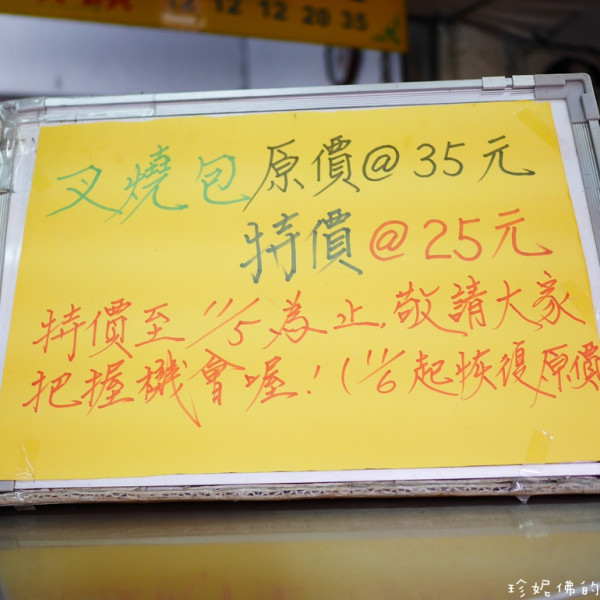 12 12 12 20 35
叉燒包原價@35元
特價@25元
特價至11/5為止,敬請大家
把握機會喔!(11/6起恢復原價
珍妮佛的